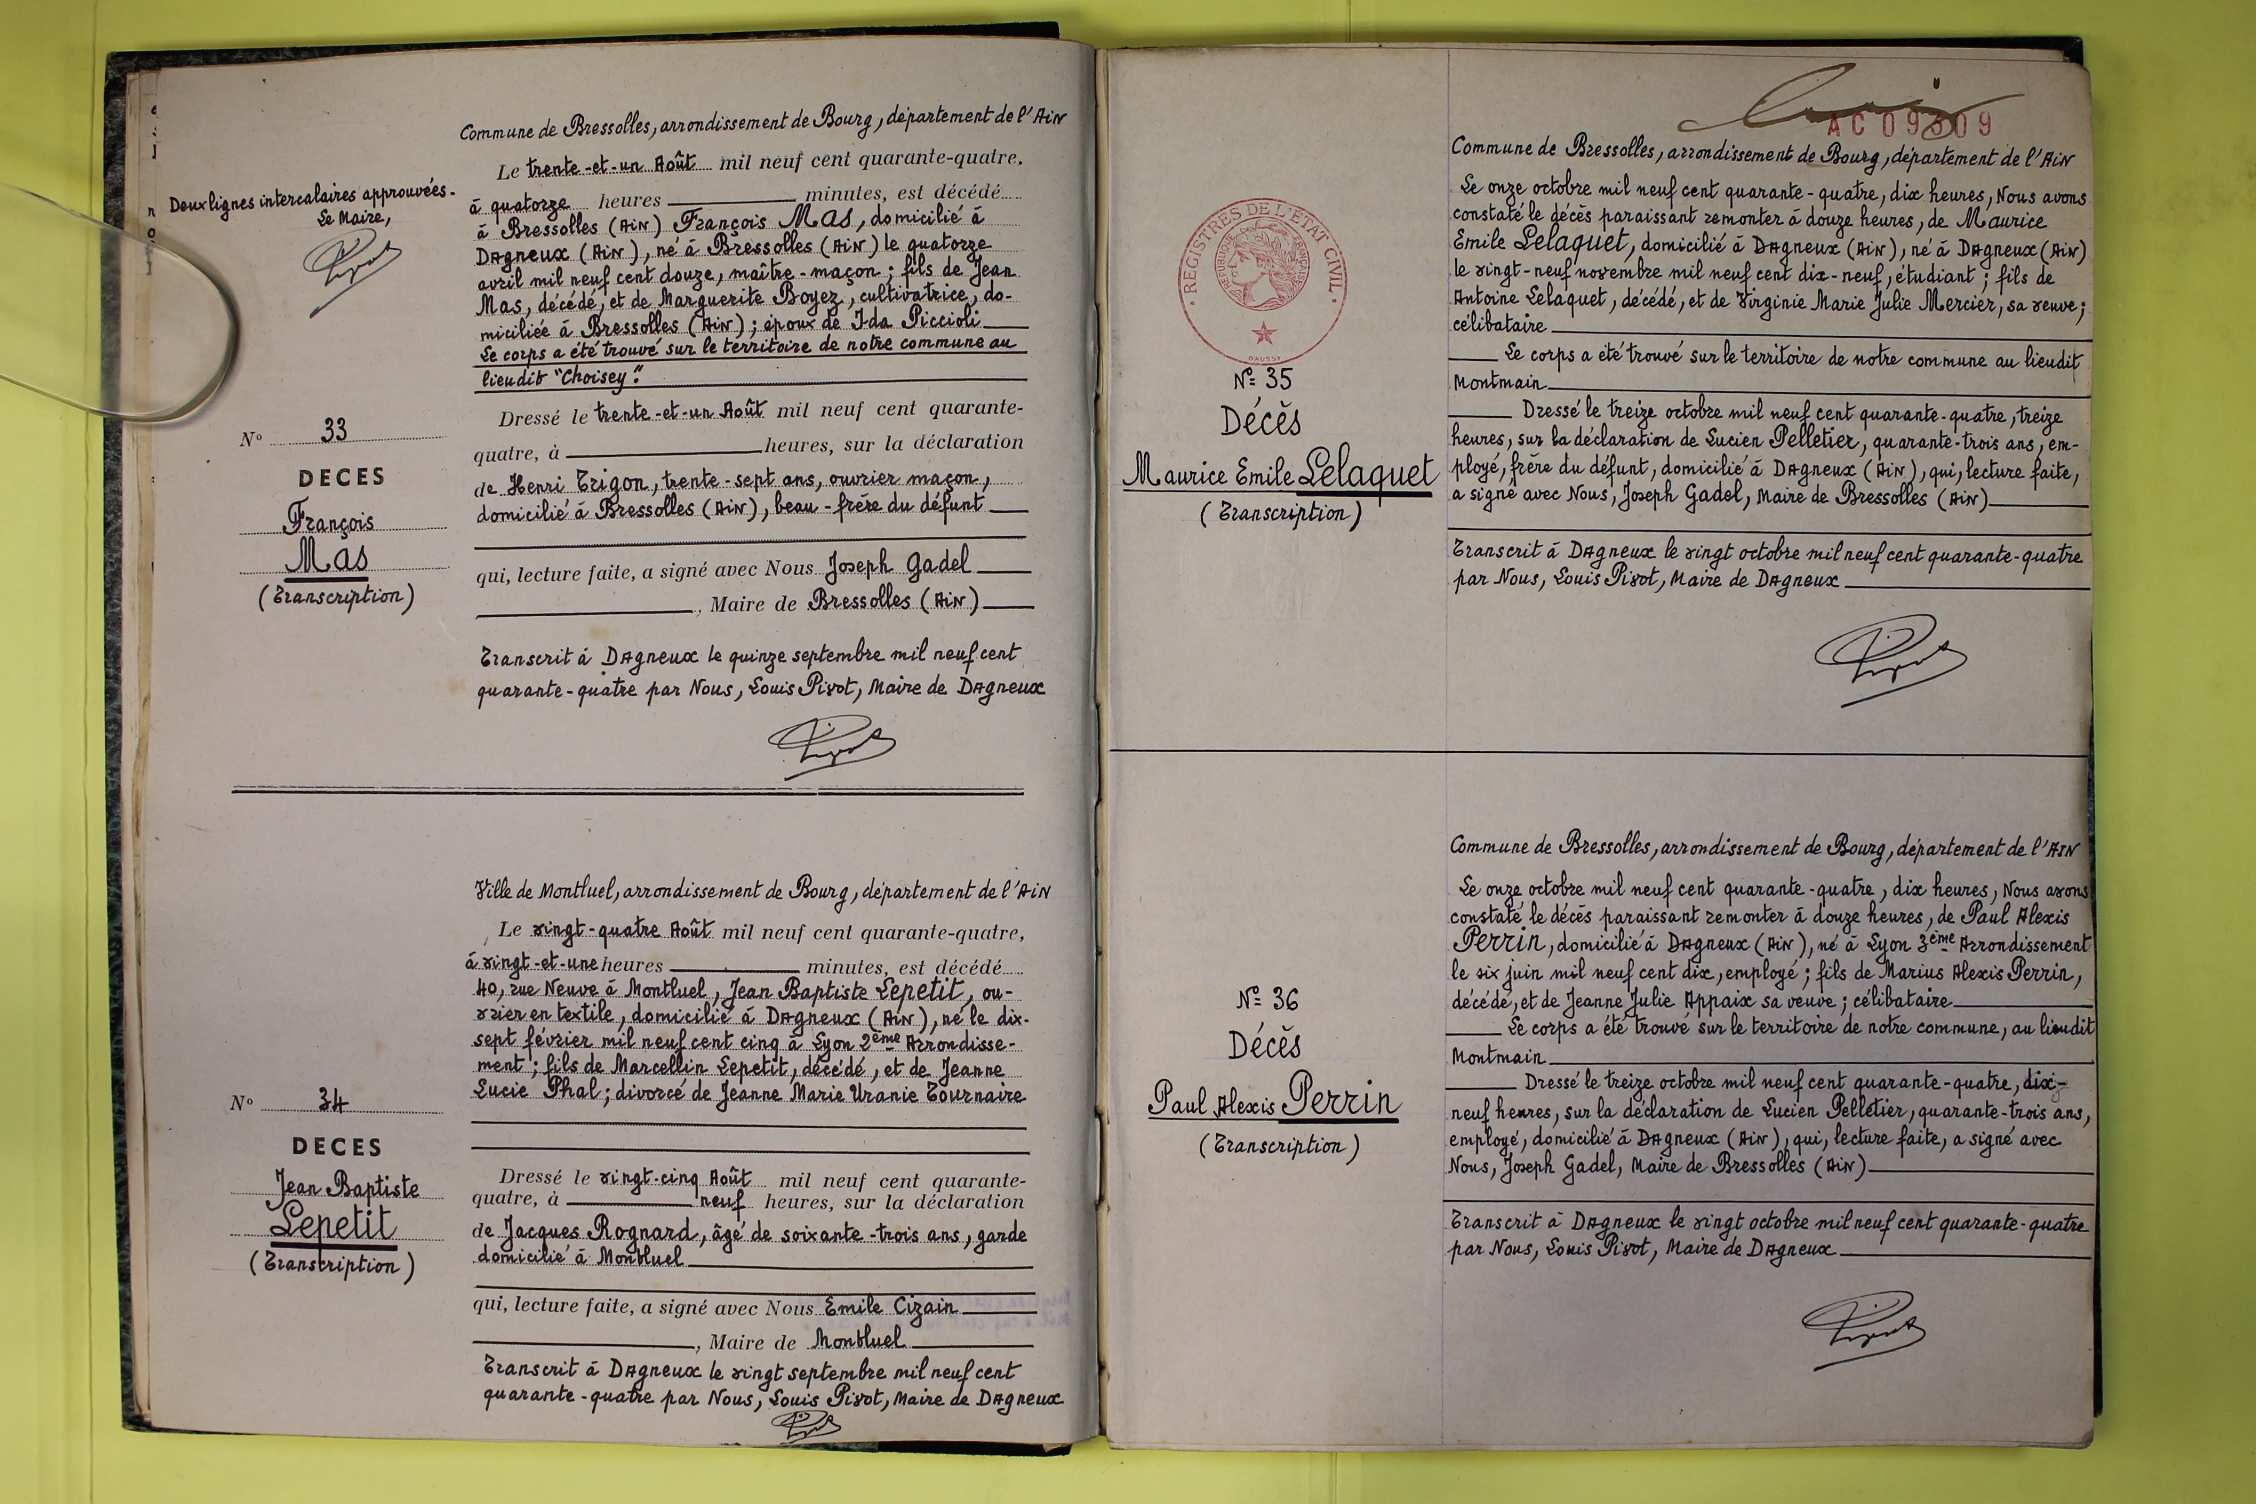 Commune de Bressolles, arrondissement de Bourg, département de l'Ain
Le trente-et-un Août mil neuf cent quarante-quatre.
à quatorze heures minutes, est décédé
à Bressolles (Ain) François Mas, domicilié à
Dagneux (Ain), né à Bressolles (Ain) le quatorze
avril mil neuf cent douze, maître-maçon; fils de Jean
Mas, décédé, et de Marguerite Boyez, cultivatrice, do-
miciliée à Bressolles (Ain); époux de Ida Piccioli
Le corps a été trouvé sur le territoire de notre commune au
lieudit "Choisey".
Deux lignes intercalaires approuvées -
Le Maire,
Dressé le trente-et-un Août mil neuf cent quarante-
quatre, à heures, sur la déclaration
de Henri Trigon, trente-sept ans, ouvrier maçon,
domicilié à Bressolles (Ain), beau-frère du défunt
qui, lecture faite, a signé avec Nous Joseph Gadel
, Maire de Bressolles (Ain)
Transcrit à Dagneux le quinze septembre mil neuf cent
quarante-quatre par Nous, Louis Pivot, Maire de Dagneux
No 33
DECES
François
Mas
(Transcription)
Ville de Montluel, arrondissement de Bourg, département de l'Ain
Le vingt-quatre Août mil neuf cent quarante-quatre,
à vingt-et-une heures minutes, est décédé
40, rue Neuve à Montluel, Jean Baptiste Lepetit, ou-
vrier en textile, domicilié à Dagneux (Ain), né le dix-
sept février mil neuf cent cinq à Lyon 2ème Arrondisse-
ment; fils de Marcellin Lepetit, décédé, et de Jeanne
Lucie Phal; divorcé de Jeanne Marie Uranie Tournaire
Dressé le vingt-cinq Août mil neuf cent quarante-
quatre, à neuf heures, sur la déclaration
de Jacques Rognard, âgé de soixante-trois ans, garde
domicilié à Montluel
qui, lecture faite, a signé avec Nous Emile Cizain
, Maire de Montluel
Transcrit à Dagneux le vingt septembre mil neuf cent
quarante-quatre par Nous, Louis Pivot, Maire de Dagneux
No 34
DECES
Jean Baptiste
Lepetit
(Transcription)
AC 09309
REGISTRES DE L'ETAT CIVIL
REPUBLIQUE FRANCAISE
DAUSSY
Commune de Bressolles, arrondissement de Bourg, département de l'Ain
Le onze octobre mil neuf cent quarante-quatre, dix heures, Nous avons
constaté le décès paraissant remonter à douze heures, de Maurice
Emile Lelaquet, domicilié à Dagneux (Ain), né à Dagneux (Ain)
le vingt-neuf novembre mil neuf cent dix-neuf, étudiant; fils de
Antoine Lelaquet, décédé, et de Virginie Marie Julie Mercier, sa veuve;
célibataire
Le corps a été trouvé sur le territoire de notre commune au lieudit
Montmain
Dressé le treize octobre mil neuf cent quarante-quatre, treize
heures, sur la déclaration de Lucien Pelletier, quarante-trois ans, em-
ployé, frère du défunt, domicilié à Dagneux (Ain), qui, lecture faite,
a signé avec Nous, Joseph Gadel, Maire de Bressolles (Ain)
Transcrit à Dagneux le vingt octobre mil neuf cent quarante-quatre
par Nous, Louis Pivot, Maire de Dagneux
No 35
Décès
Maurice Emile Lelaquet
(Transcription)
Commune de Bressolles, arrondissement de Bourg, département de l'Ain
Le onze octobre mil neuf cent quarante-quatre, dix heures, Nous avons
constaté le décès paraissant remonter à douze heures, de Paul Alexis
Perrin, domicilié à Dagneux (Ain), né à Lyon 3ème Arrondissement
le six juin mil neuf cent dix, employé; fils de Marius Alexis Perrin,
décédé, et de Jeanne Julie Appaix sa veuve; célibataire
Le corps a été trouvé sur le territoire de notre commune, au lieudit
Montmain
Dressé le treize octobre mil neuf cent quarante-quatre, dix-
neuf heures, sur la déclaration de Lucien Pelletier, quarante-trois ans,
employé, domicilié à Dagneux (Ain), qui, lecture faite, a signé avec
Nous, Joseph Gadel, Maire de Bressolles (Ain)
Transcrit à Dagneux le vingt octobre mil neuf cent quarante-quatre
par Nous, Louis Pivot, Maire de Dagneux
No 36
Décès
Paul Alexis Perrin
(Transcription)